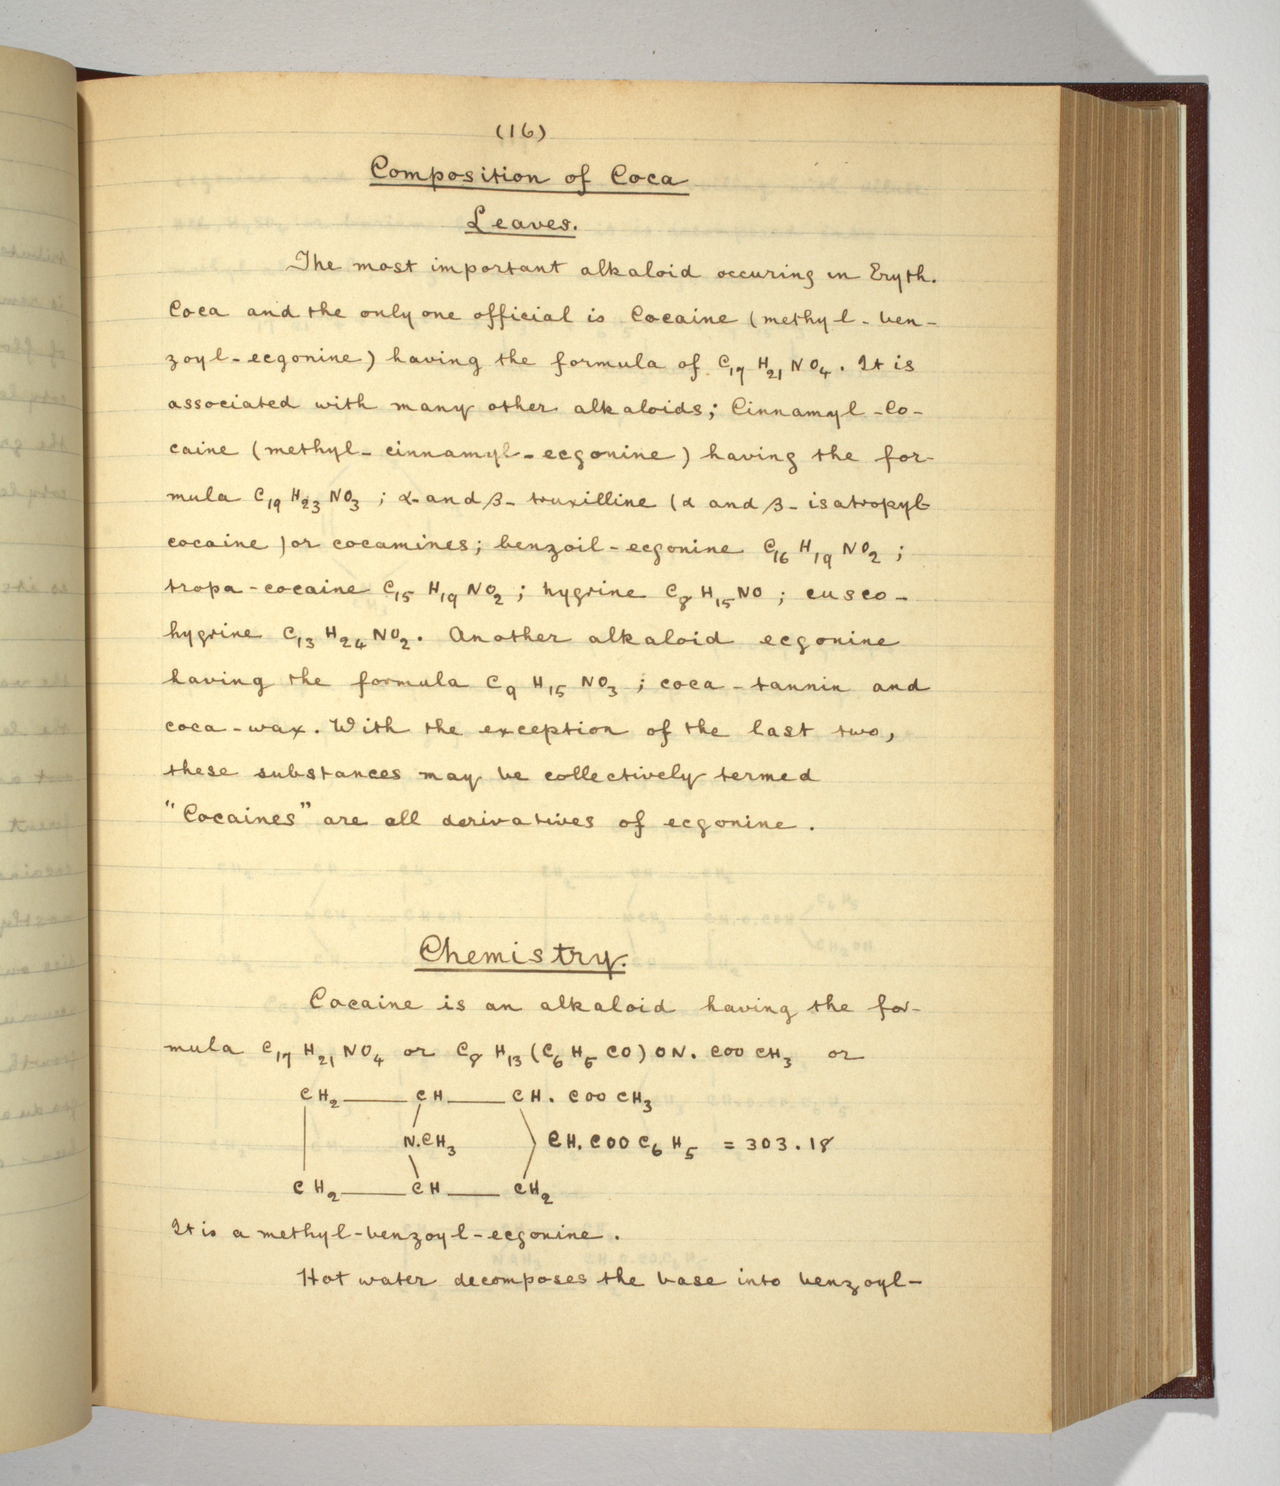 (16)
Composition of Coca
Leaves.
The most important alkaloid occuring in Eryth.
Coca and the only one official is Cocaine (methyl-ben-
zoyl-ecgonine) having the formula of C₁₇ H₂₁ NO₄. It is
associated with many other alkaloids; Cinnamyl-Co-
caine (methyl-cinnamyl-ecgonine) having the for-
mula C₁₉ H₂₃ NO₃; α-and β-truxilline (α and β-isatropyl
cocaine) or cocamines; benzoil-ecgonine C₁₆ H₁₉ NO₂;
tropa-cocaine C₁₅ H₁₉ NO₂; hygrine C₈ H₁₅ NO; cusco-
hygrine C₁₃ H₂₄ NO₂. Another alkaloid ecgonine
having the formula C₉ H₁₅ NO₃; coca-tannin and
coca-wax. With the exception of the last two,
these substances may be collectively termed
"Cocaines" are all derivatives of ecgonine.
Chemistry.
Cocaine is an alkaloid having the for-
mula C₁₇ H₂₁ NO₄ or C₈ H₁₃ (C₆ H₅ CO) ON. COO CH₃ or
CH₂ CH CH. COO CH₃
N.CH₃ CH. COO C₆ H₅ = 303.18
CH₂ CH CH₂
It is a methyl-benzoyl-ecgonine.
Hot water decomposes the base into benzoyl-